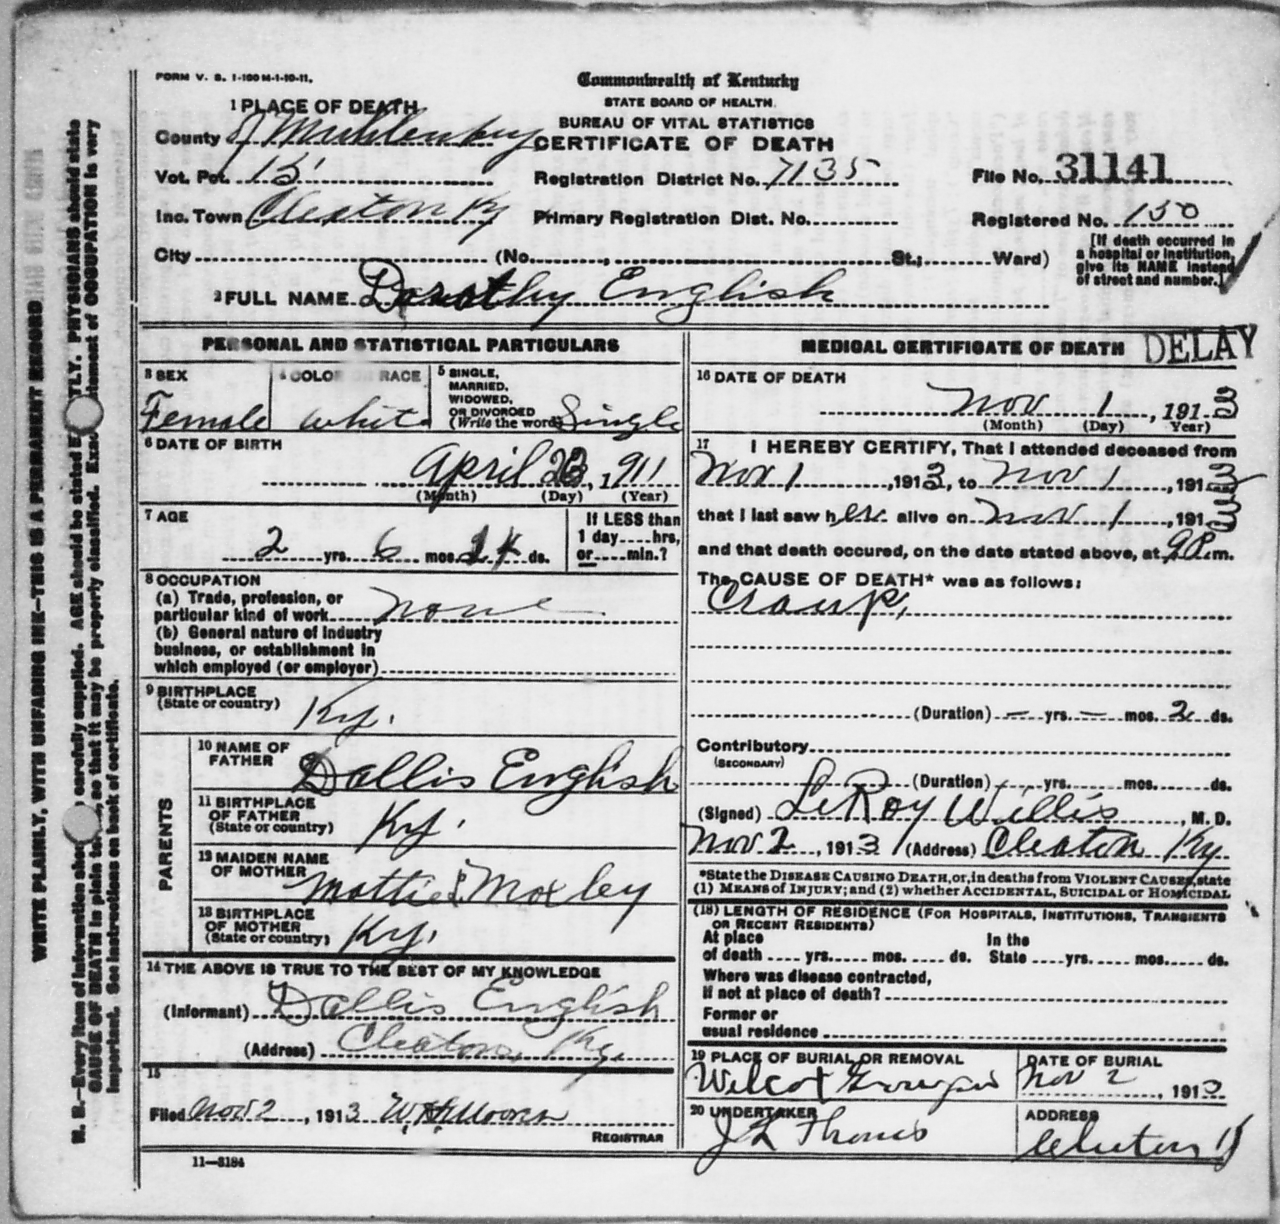 FORM V. S. 1-100 M-1-10-11.
Commonwealth of Kentucky
STATE BOARD OF HEALTH.
BUREAU OF VITAL STATISTICS
CERTIFICATE OF DEATH
1 PLACE OF DEATH
County of Muhlenberg
Vot. Pct. 15 Registration District No. 7135 File No. 31141
Inc. Town Cleaton Ky Primary Registration Dist. No. Registered No. 150
City (No. , St.; Ward)
[If death occurred in
a hospital or institution,
give its NAME instead
of street and number.]
2 FULL NAME Dorothy English
PERSONAL AND STATISTICAL PARTICULARS
3 SEX Female
4 COLOR OR RACE white
5 SINGLE,
MARRIED,
WIDOWED,
OR DIVORCED
(Write the word) Single
6 DATE OF BIRTH
April 23, 1911
(Month) (Day) (Year)
7 AGE
2 yrs. 6 mos. ds.
If LESS than
1 day hrs,
or min.?
8 OCCUPATION
(a) Trade, profession, or
particular kind of work none
(b) General nature of industry
business, or establishment in
which employed (or employer)
9 BIRTHPLACE
(State or country)
Ky.
PARENTS
10 NAME OF
FATHER Dallis English
11 BIRTHPLACE
OF FATHER
(State or country) Ky.
12 MAIDEN NAME
OF MOTHER Mattie Moxley
13 BIRTHPLACE
OF MOTHER
(State or country) Ky.
14 THE ABOVE IS TRUE TO THE BEST OF MY KNOWLEDGE
(Informant) Dallis English
(Address) Cleaton, Ky.
15
Filed Nov 2, 1913 W.H. Moore
REGISTRAR
11—3184
MEDICAL CERTIFICATE OF DEATH DELAY
16 DATE OF DEATH
Nov 1, 1913
(Month) (Day) Year)
17 I HEREBY CERTIFY, That I attended deceased from
Nov 1, 1913, to Nov 1, 1913
that I last saw her alive on Nov 1, 1913
and that death occured, on the date stated above, at 9 P. m.
The CAUSE OF DEATH* was as follows:
Croup,
(Duration) — yrs. — mos. 2 ds.
Contributory
(SECONDARY)
(Duration) yrs. mos. ds.
(Signed) LeRoy Willis, M. D.
Nov 2, 1913 (Address) Cleaton Ky
*State the DISEASE CAUSING DEATH, or, in deaths from VIOLENT CAUSES, state
(1) MEANS of INJURY; and (2) whether ACCIDENTAL, SUICIDAL OR HOMICIDAL
(18) LENGTH OF RESIDENCE (FOR HOSPITALS, INSTITUTIONS, TRANSIENTS
OR RECENT RESIDENTS)
At place In the
of death yrs. mos. ds. State yrs. mos. ds.
Where was disease contracted,
if not at place of death?
Former or
usual residence
19 PLACE OF BURIAL OR REMOVAL DATE OF BURIAL
Nov 2, 1913
20 UNDERTAKER ADDRESS
Cleaton
WRITE PLAINLY, WITH UNFADING INK—THIS IS A PERMANENT RECORD
N. B.—Every item of information should carefully supplied. AGE should be stated EXACTLY. PHYSICIANS should state
CAUSE OF DEATH in plain terms, so that it may be properly classified. Exact statement of OCCUPATION is very
important. See instructions on back of certificate.